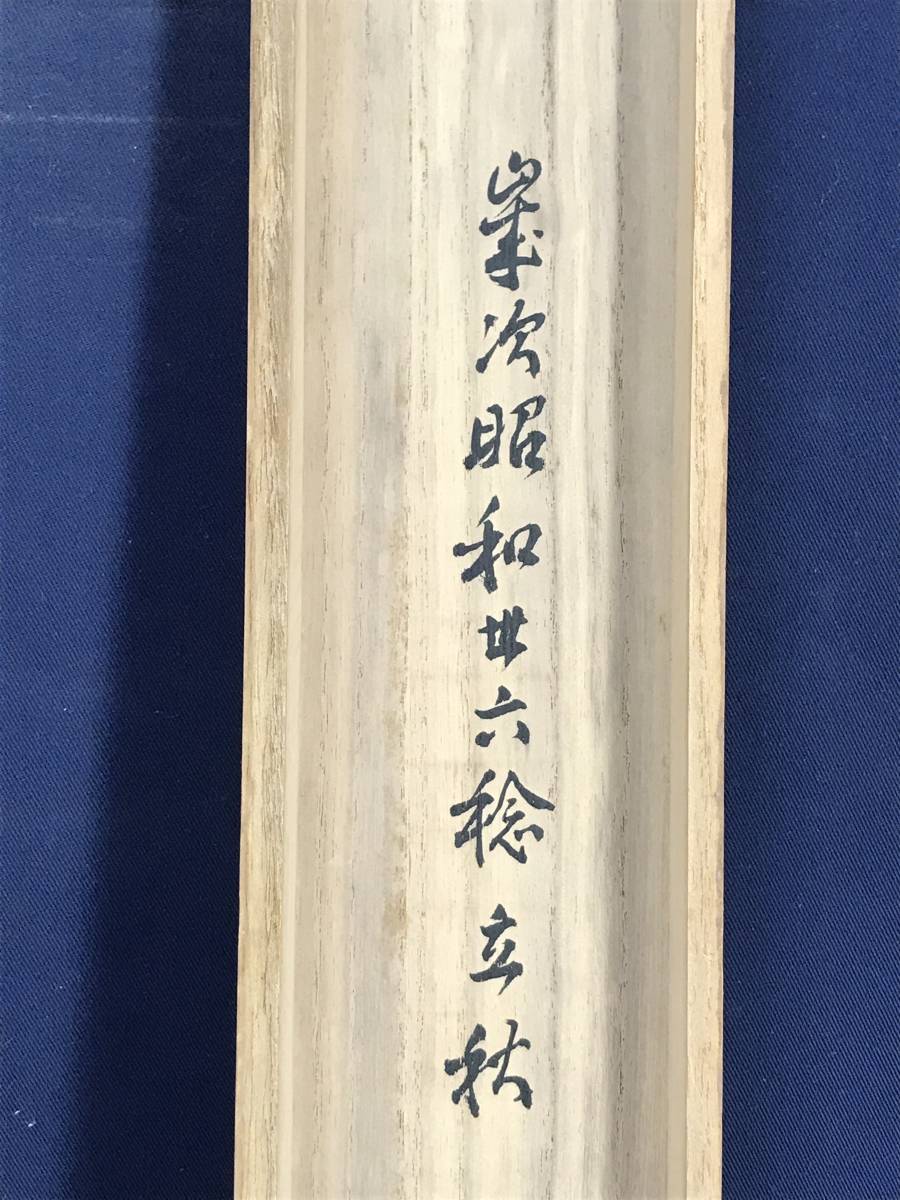 歳次昭和丗六稔立秋